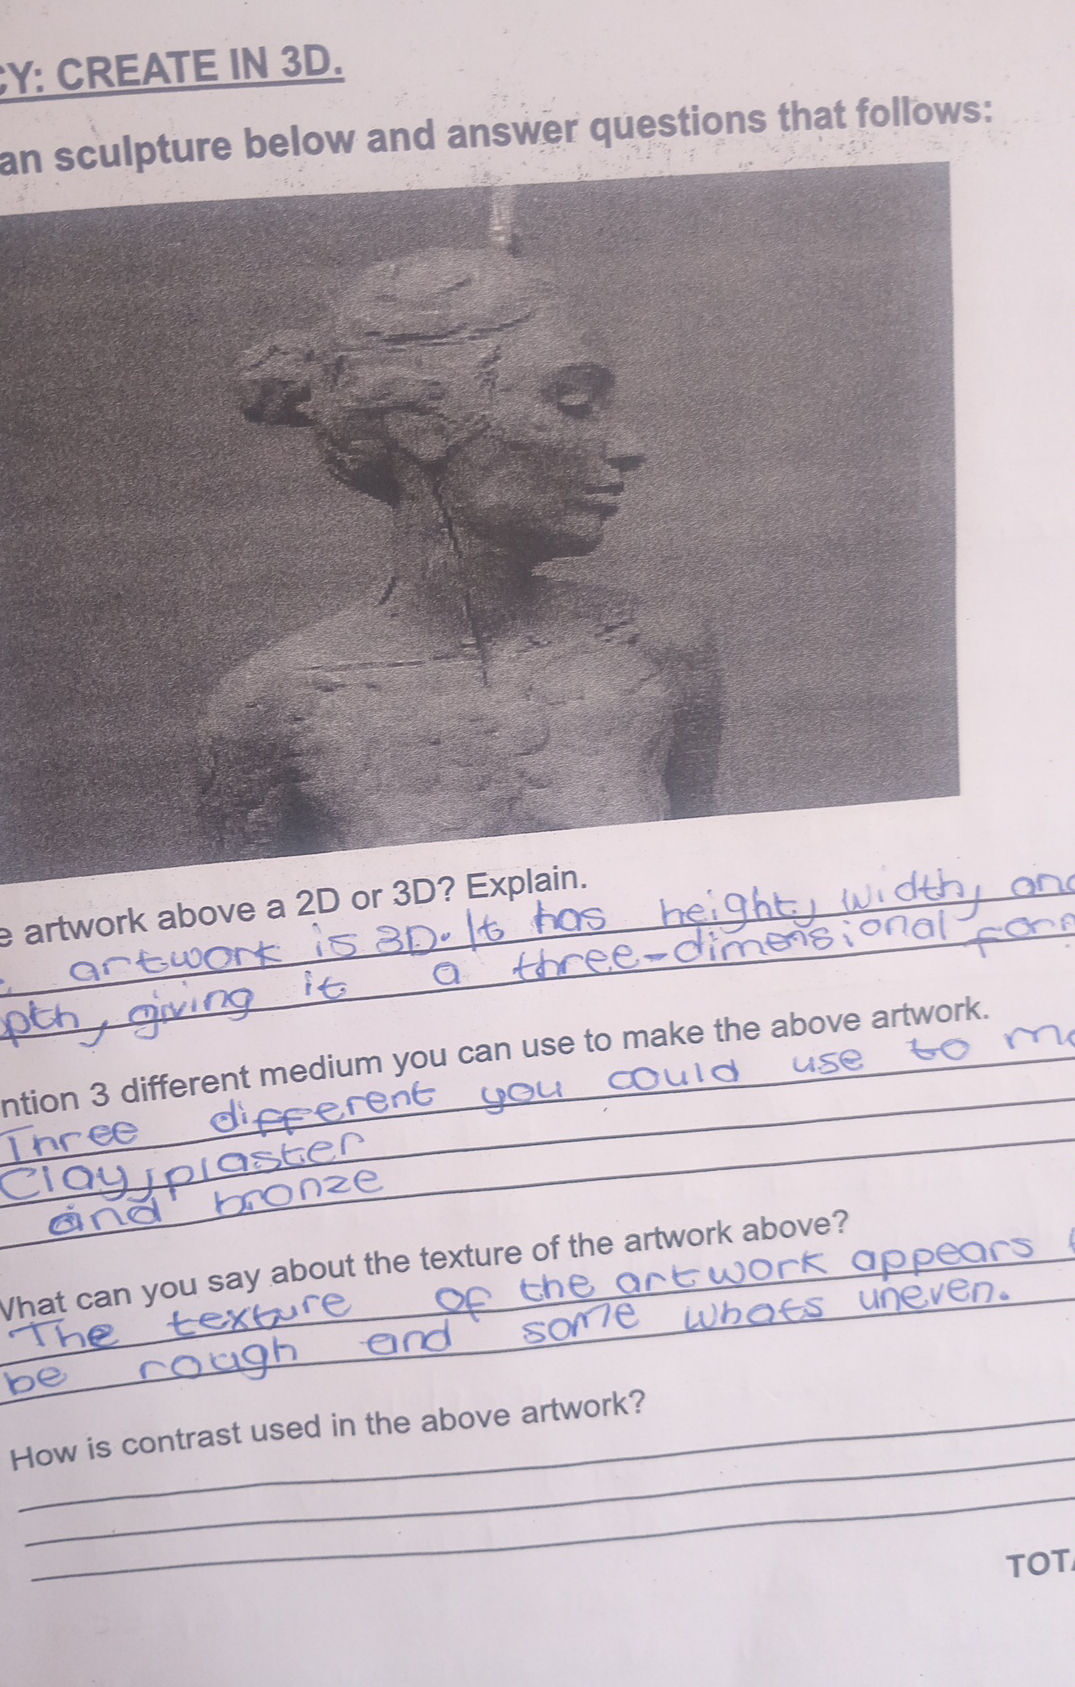 CY: CREATE IN 3D.
an sculpture below and answer questions that follows:
e artwork above a 2D or 3D? Explain.
artwork is 3D. It has height, width, and
pth, giving it a three-dimensional form
ntion 3 different medium you can use to make the above artwork.
Three different you could use to ma
Clay, plaster
and bronze
What can you say about the texture of the artwork above?
The texture of the artwork appears
be rough and some whats uneven.
How is contrast used in the above artwork?
TOTA